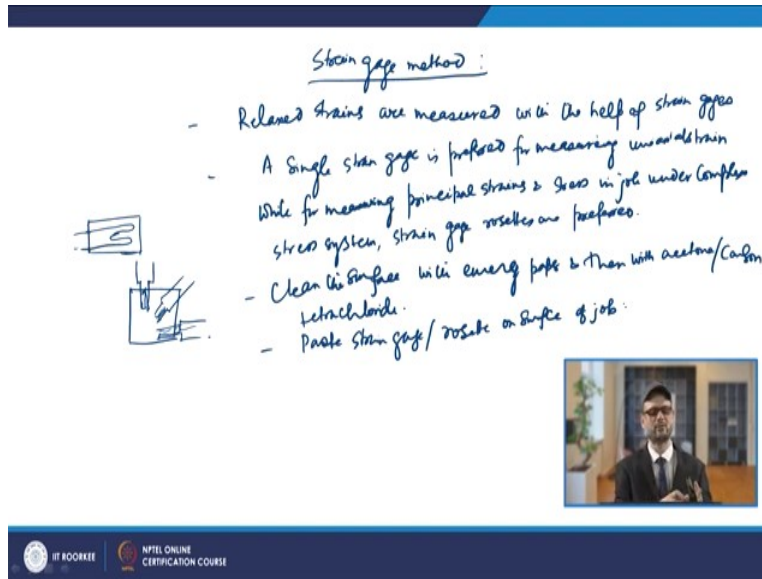 Strain gage method :
- Relaxed strains are measured with the help of strain gages
- A single strain gage is prefered for measuring uniaxial strain
while for measuring principal strains & stress in job under complex
stress system, strain gage rosettes are prefered.
- Clean the surface with emery paper & then with acetone/Carbon
tetrachloride.
- Paste strain gage/ rosette on surface of job:
IIT ROORKEE
NPTEL ONLINE
CERTIFICATION COURSE